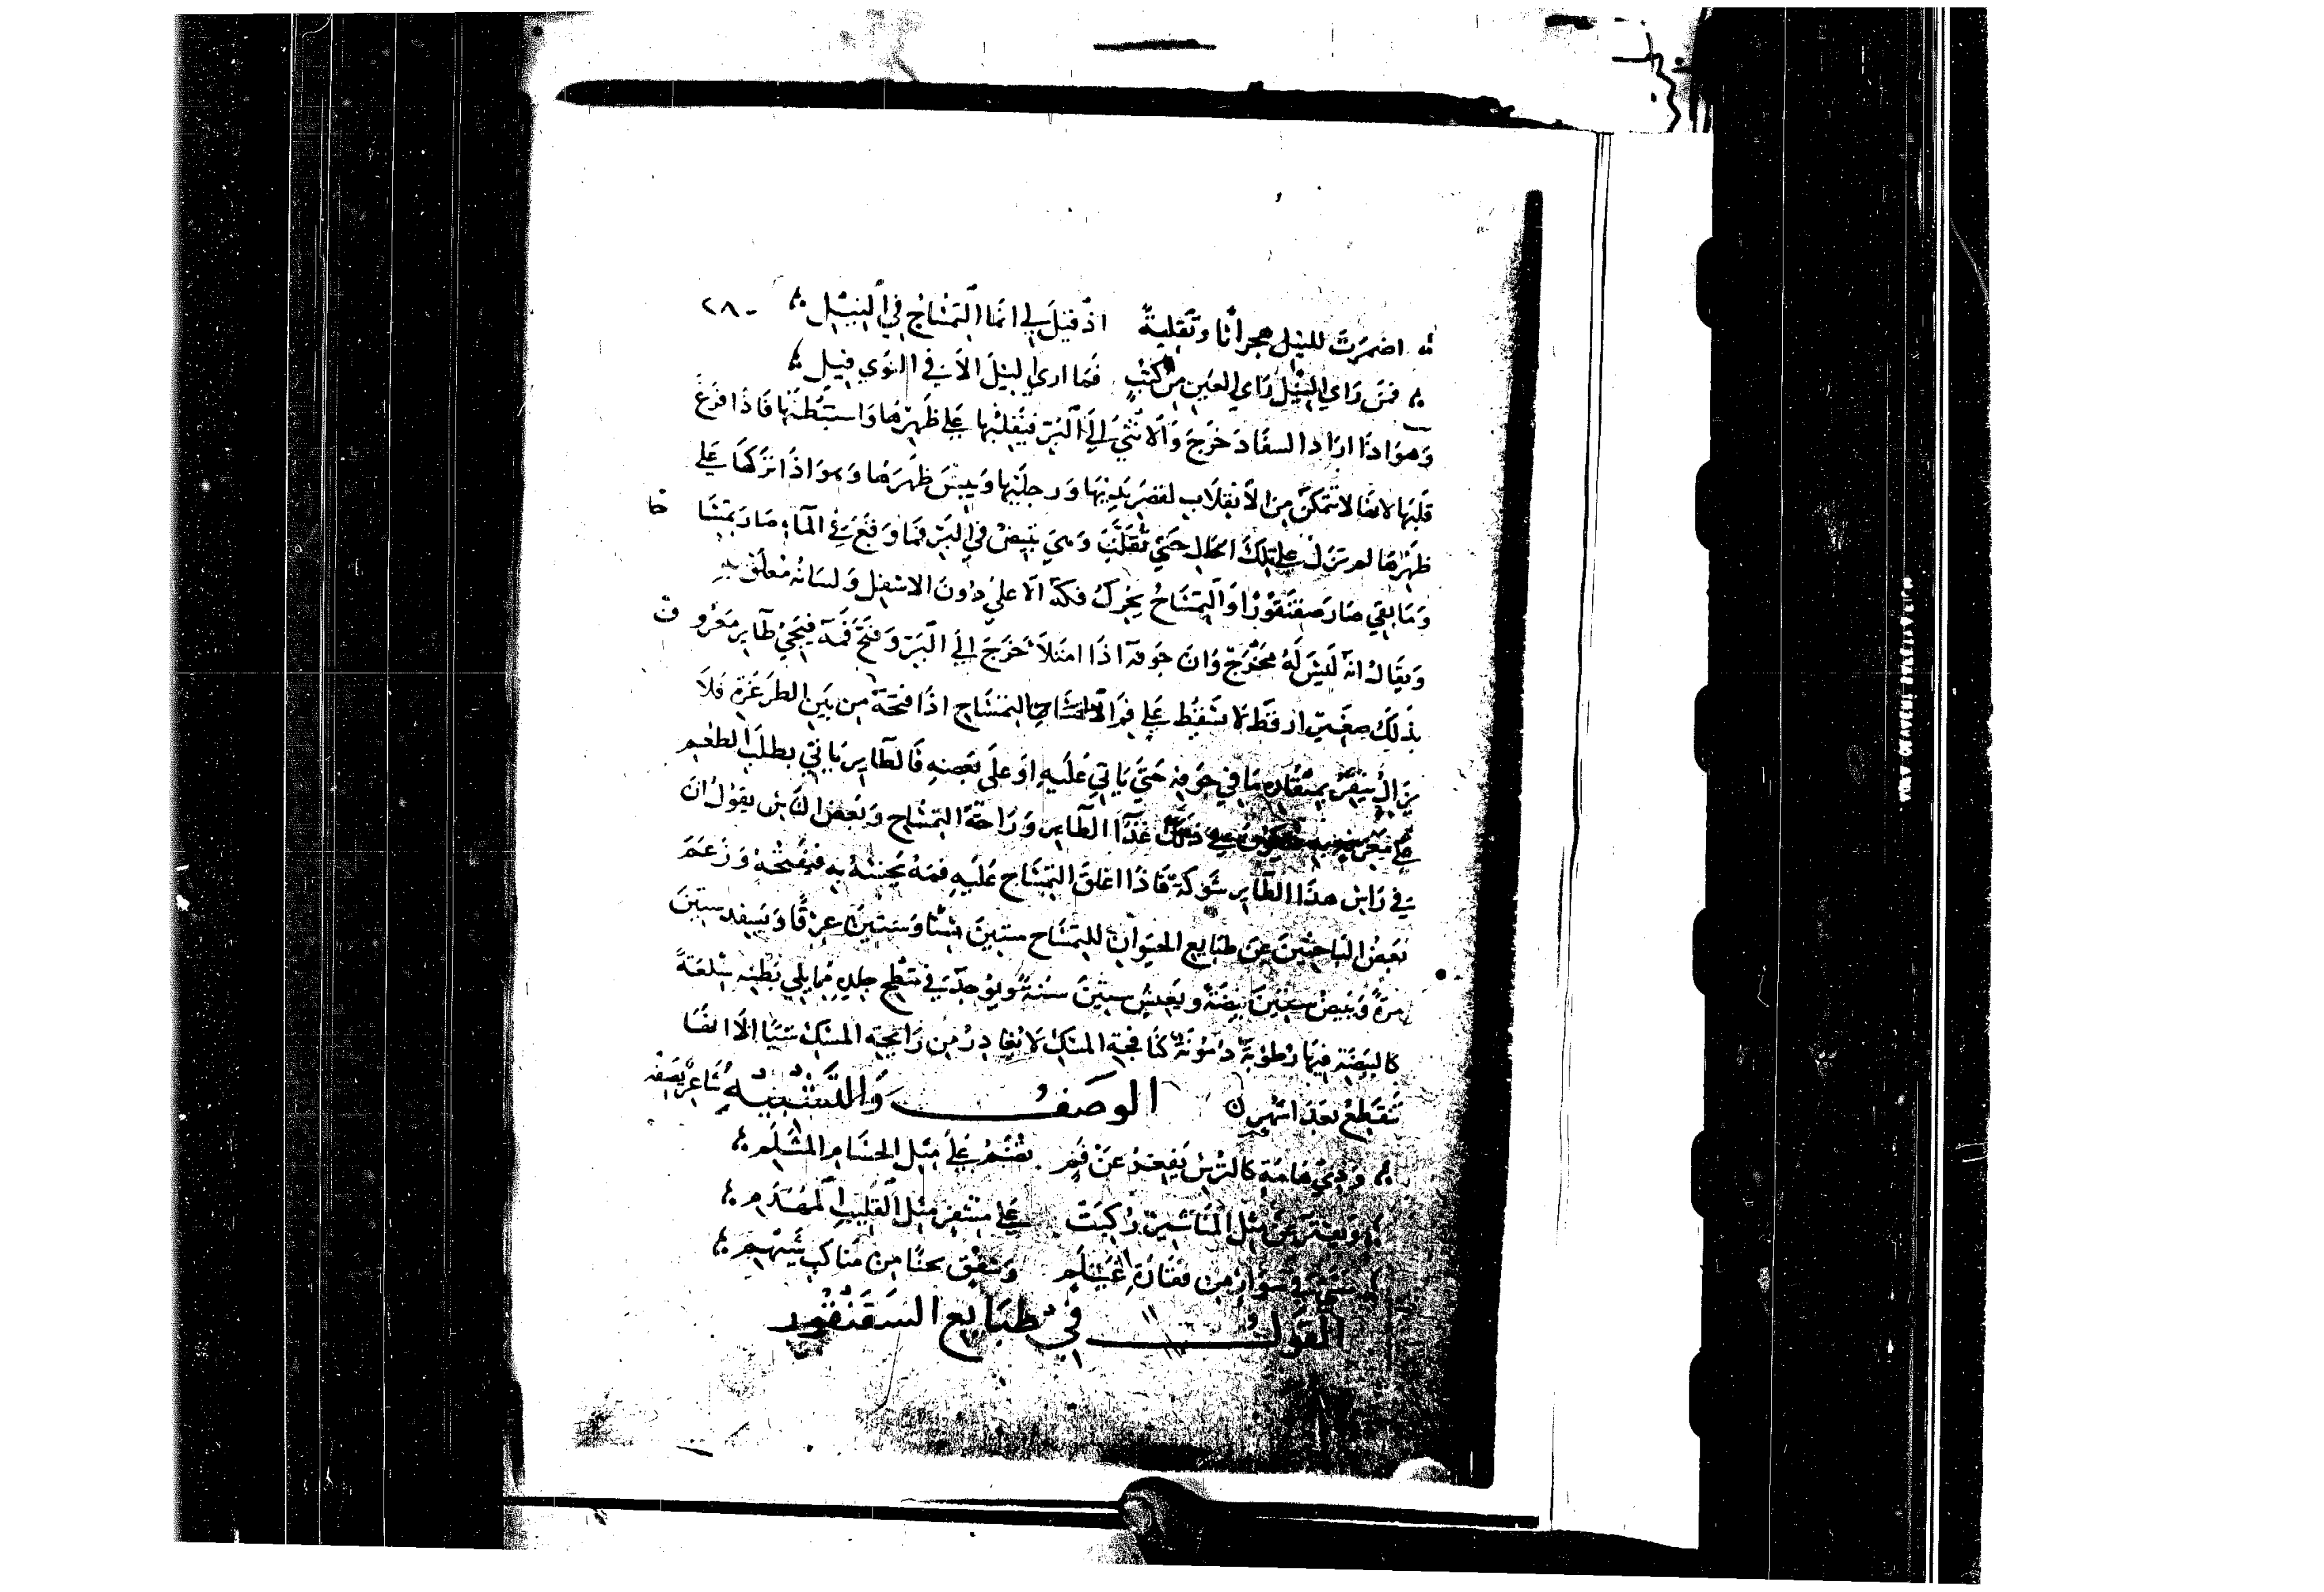 اضمرت للنيل هجرانا وتقلية اذ قيل لي انما التمساح في النيل ٢٨٠
فمن راي النيل راي العين من كثب فما اري النيل الا في النوي قيل
وهو اذا اراد السفاد خرج والانثي الي البر فيقلبها علي ظهرها واستبطنها فاذا فرغ
قلبها لانها لا تتمكن من الانقلاب لقصر يديها ورجليها ويبس ظهرها وهو اذا تركها علي
ظهرها لم تزل علي تلك الحال حتي تقلب وهي تبيض في البر فما وقع في الماء صار تمسا حا
وما بقي صار صقنقورا والتمساح يحرك فكه الاعلي دون الاسفل ولسانه معلق به
ويقال انه ليس له مخرج وان جوفه اذا امتلا خرج الي البر وفتح فمه فيجي طاير معرو ف
بذلك صغير ارقط يسقط علي فم التمساح اذا فتحه من بين الطير غره فلا
يزال ينقر بمنقاره ما في جوفه حتي ياتي عليه او علي بعضه فالطاير ياتي يطلب الطعم
غذا الطاير وراحة التمساح وبعض الناس يقول ان
في راس هذا الطاير شوكة فاذا اغلق التمساح عليه فمه نخسه به فيفتحه وزعم
بعض الباحثين عن طبايع الحيوان للتمساح ستين سنا وستين عرقا ويسفد ستين
مرة وتبيض ستين بيضة ويعيش ستين سنة ويوجد في سطح جلده مما يلي بطنه سلعة
كالبيضة فيها رطوبة دمونة كنافجة المسك لا تغادر من رايحة المسك شيا الا انها
تنقطع بعد اشهر الوصف والتشبيه شاعر يصفه
وذي هامة كالترس يفغر عن فم يضم علي مثل الحسام المثلم
ويفتر عن مثل المناشير ركبت علي مشفر مثل القليب المهدم
من فقارة غيلم من مناكب شيهم
القول في طبايع السقنقور